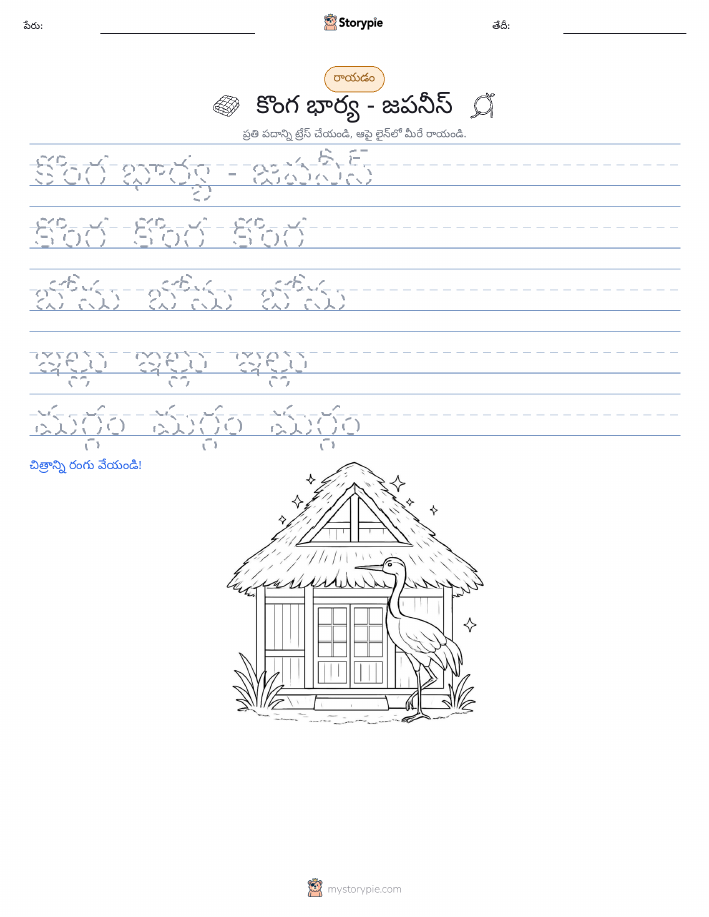 పేరు: Storypie తేదీ:
రాయడం
కొంగ భార్య - జపనీస్
ప్రతి పదాన్ని ట్రేస్ చేయండి, ఆపై లైన్‌లో మీరే రాయండి.
కొంగ భార్య - జపనీస్
కొంగ కొంగ కొంగ
బోను బోను బోను
ఇల్లు ఇల్లు ఇల్లు
మగ్గం మగ్గం మగ్గం
చిత్రాన్ని రంగు వేయండి!
mystorypie.com